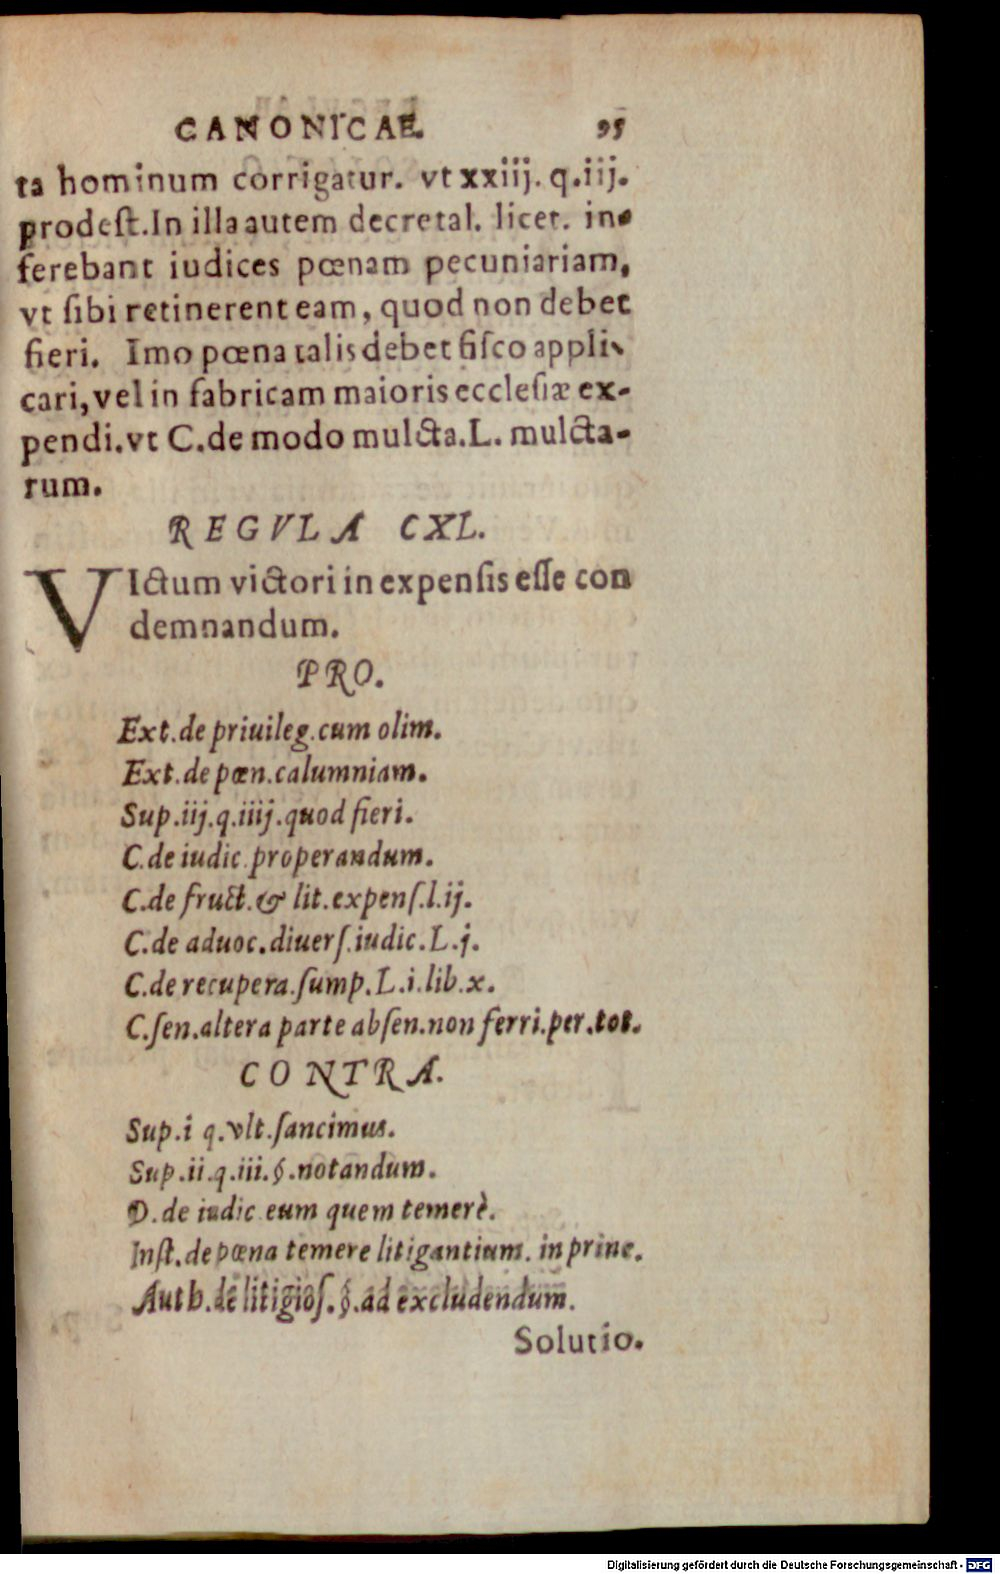 CANONICAE. 95
ta hominum corrigatur. vt xxiij. q.iij.
prodeſt. In illa autem decretal. licet. in-
ferebant iudices pœnam pecuniariam,
vt ſibi retinerent eam, quod non debet
fieri. Imo pœna talis debet fiſco appli-
cari, vel in fabricam maioris eccleſiæ ex-
pendi. vt C. de modo mulcta. L. mulcta-
rum.
REGVLA CXL.
VIctum victori in expenſis eſſe con
demnandum.
PRO.
Ext. de priuileg. cum olim.
Ext. de pœn. calumniam.
Sup. iij. q. iiij. quod fieri.
C. de iudic. properandum.
C. de fruct. & lit. expenſ. l. ij.
C. de aduoc. diuerſ. iudic. L. j.
C. de recupera. ſump. L. i. lib. x.
C. ſen. altera parte abſen. non ferri. per. tot.
CONTRA.
Sup. i q. vlt. ſancimus.
Sup. ii. q. iii. §. notandum.
D. de iudic eum quem temerè.
Inſt. de pœna temere litigantium. in princ.
Auth. de litigioſ. §. ad excludendum.
Solutio.
Digitalisierung gefördert durch die Deutsche Forschungsgemeinschaft - DFG